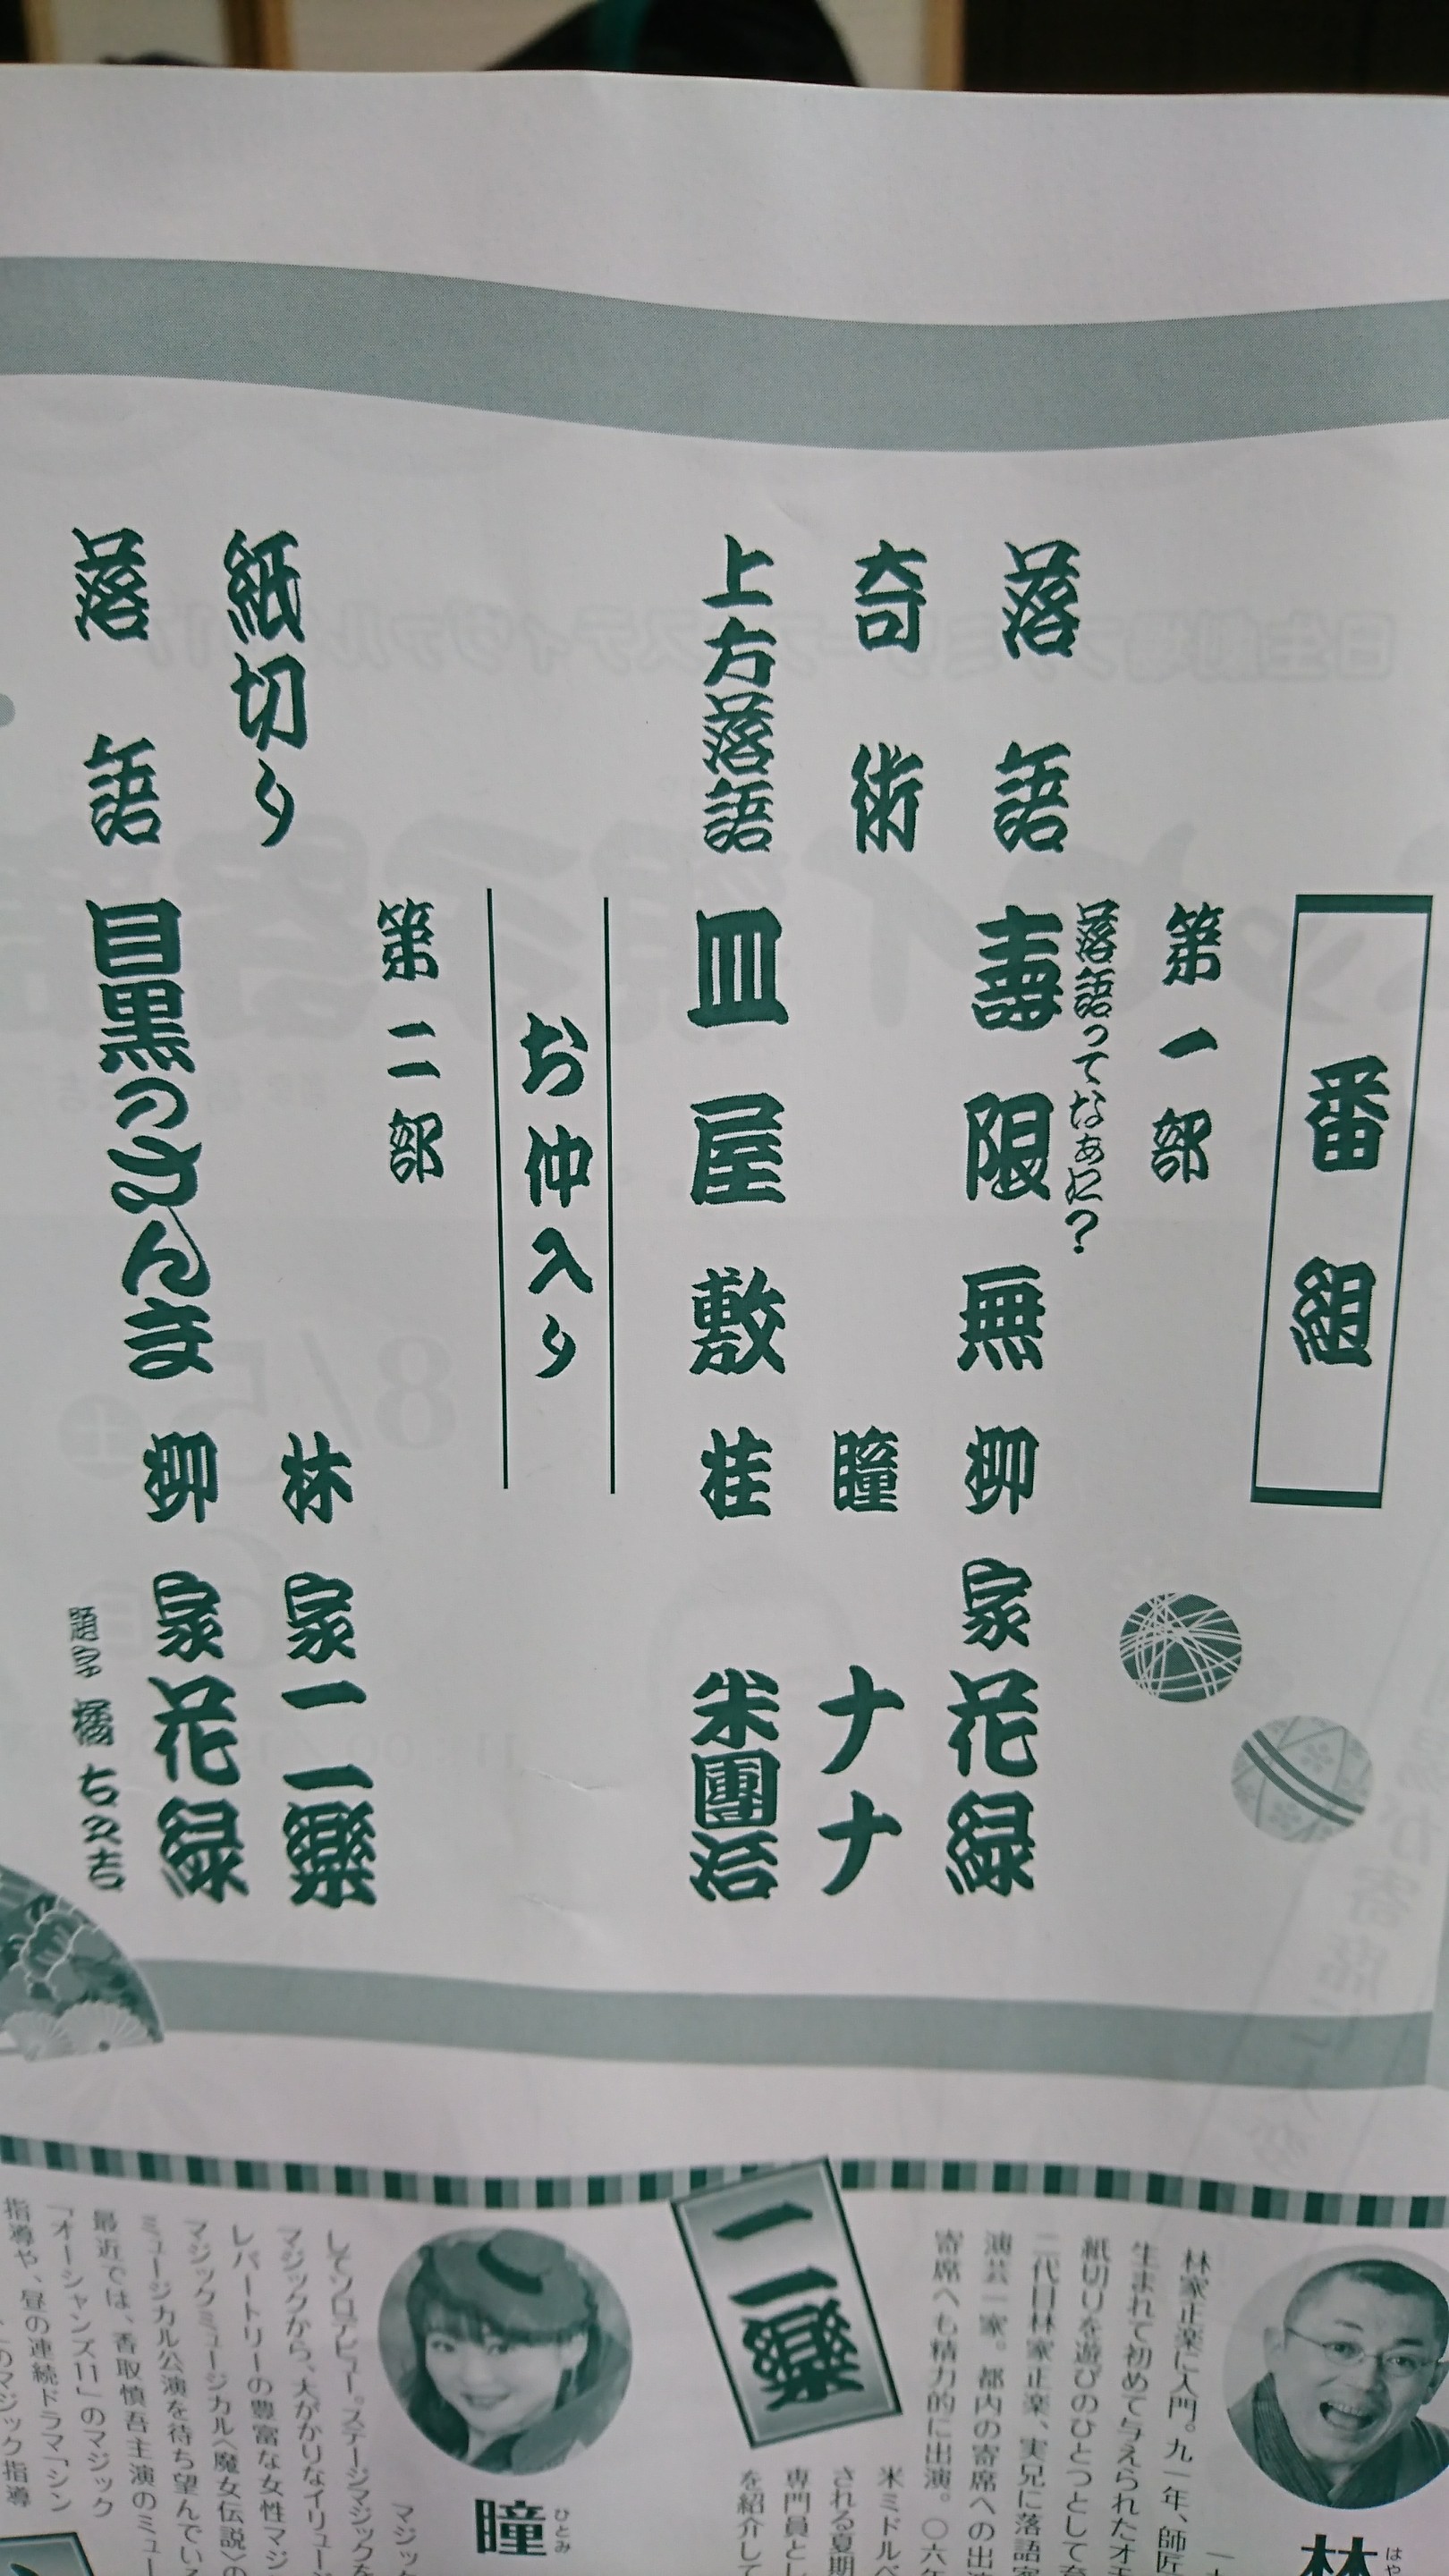 番組
第一部
落語ってなあに?
落語 壽限無 柳家花緑
奇術 瞳ナナ
上方落語 皿屋敷 桂米團治
お仲入り
第二部
紙切り 林家二楽
落語 目黒のさんま 柳家花緑
題字 橘右之吉
はや
林
林家正楽に入門。九一年、師匠
生まれて初めて与えられたオモ
紙切りを遊びのひとつとして育
二代目林家正楽、実兄に落語家
演芸一家。都内の寄席への出
寄席へも精力的に出演。〇六年
米ミドルベ
される夏期
専門員とし
を紹介して
二楽
ひとみ
瞳
マジック
してソロデビュー。ステージマジックを
マジックから、大がかりなイリュージ
レパートリーの豊富な女性マジ
マジックミュージカル〈魔女伝説〉の
ミュージカル公演を待ち望んでいる
最近では、香取慎吾主演のミュー
「オーシャンズ11」のマジック
指導や、昼の連続ドラマ「シン
のマジック指導